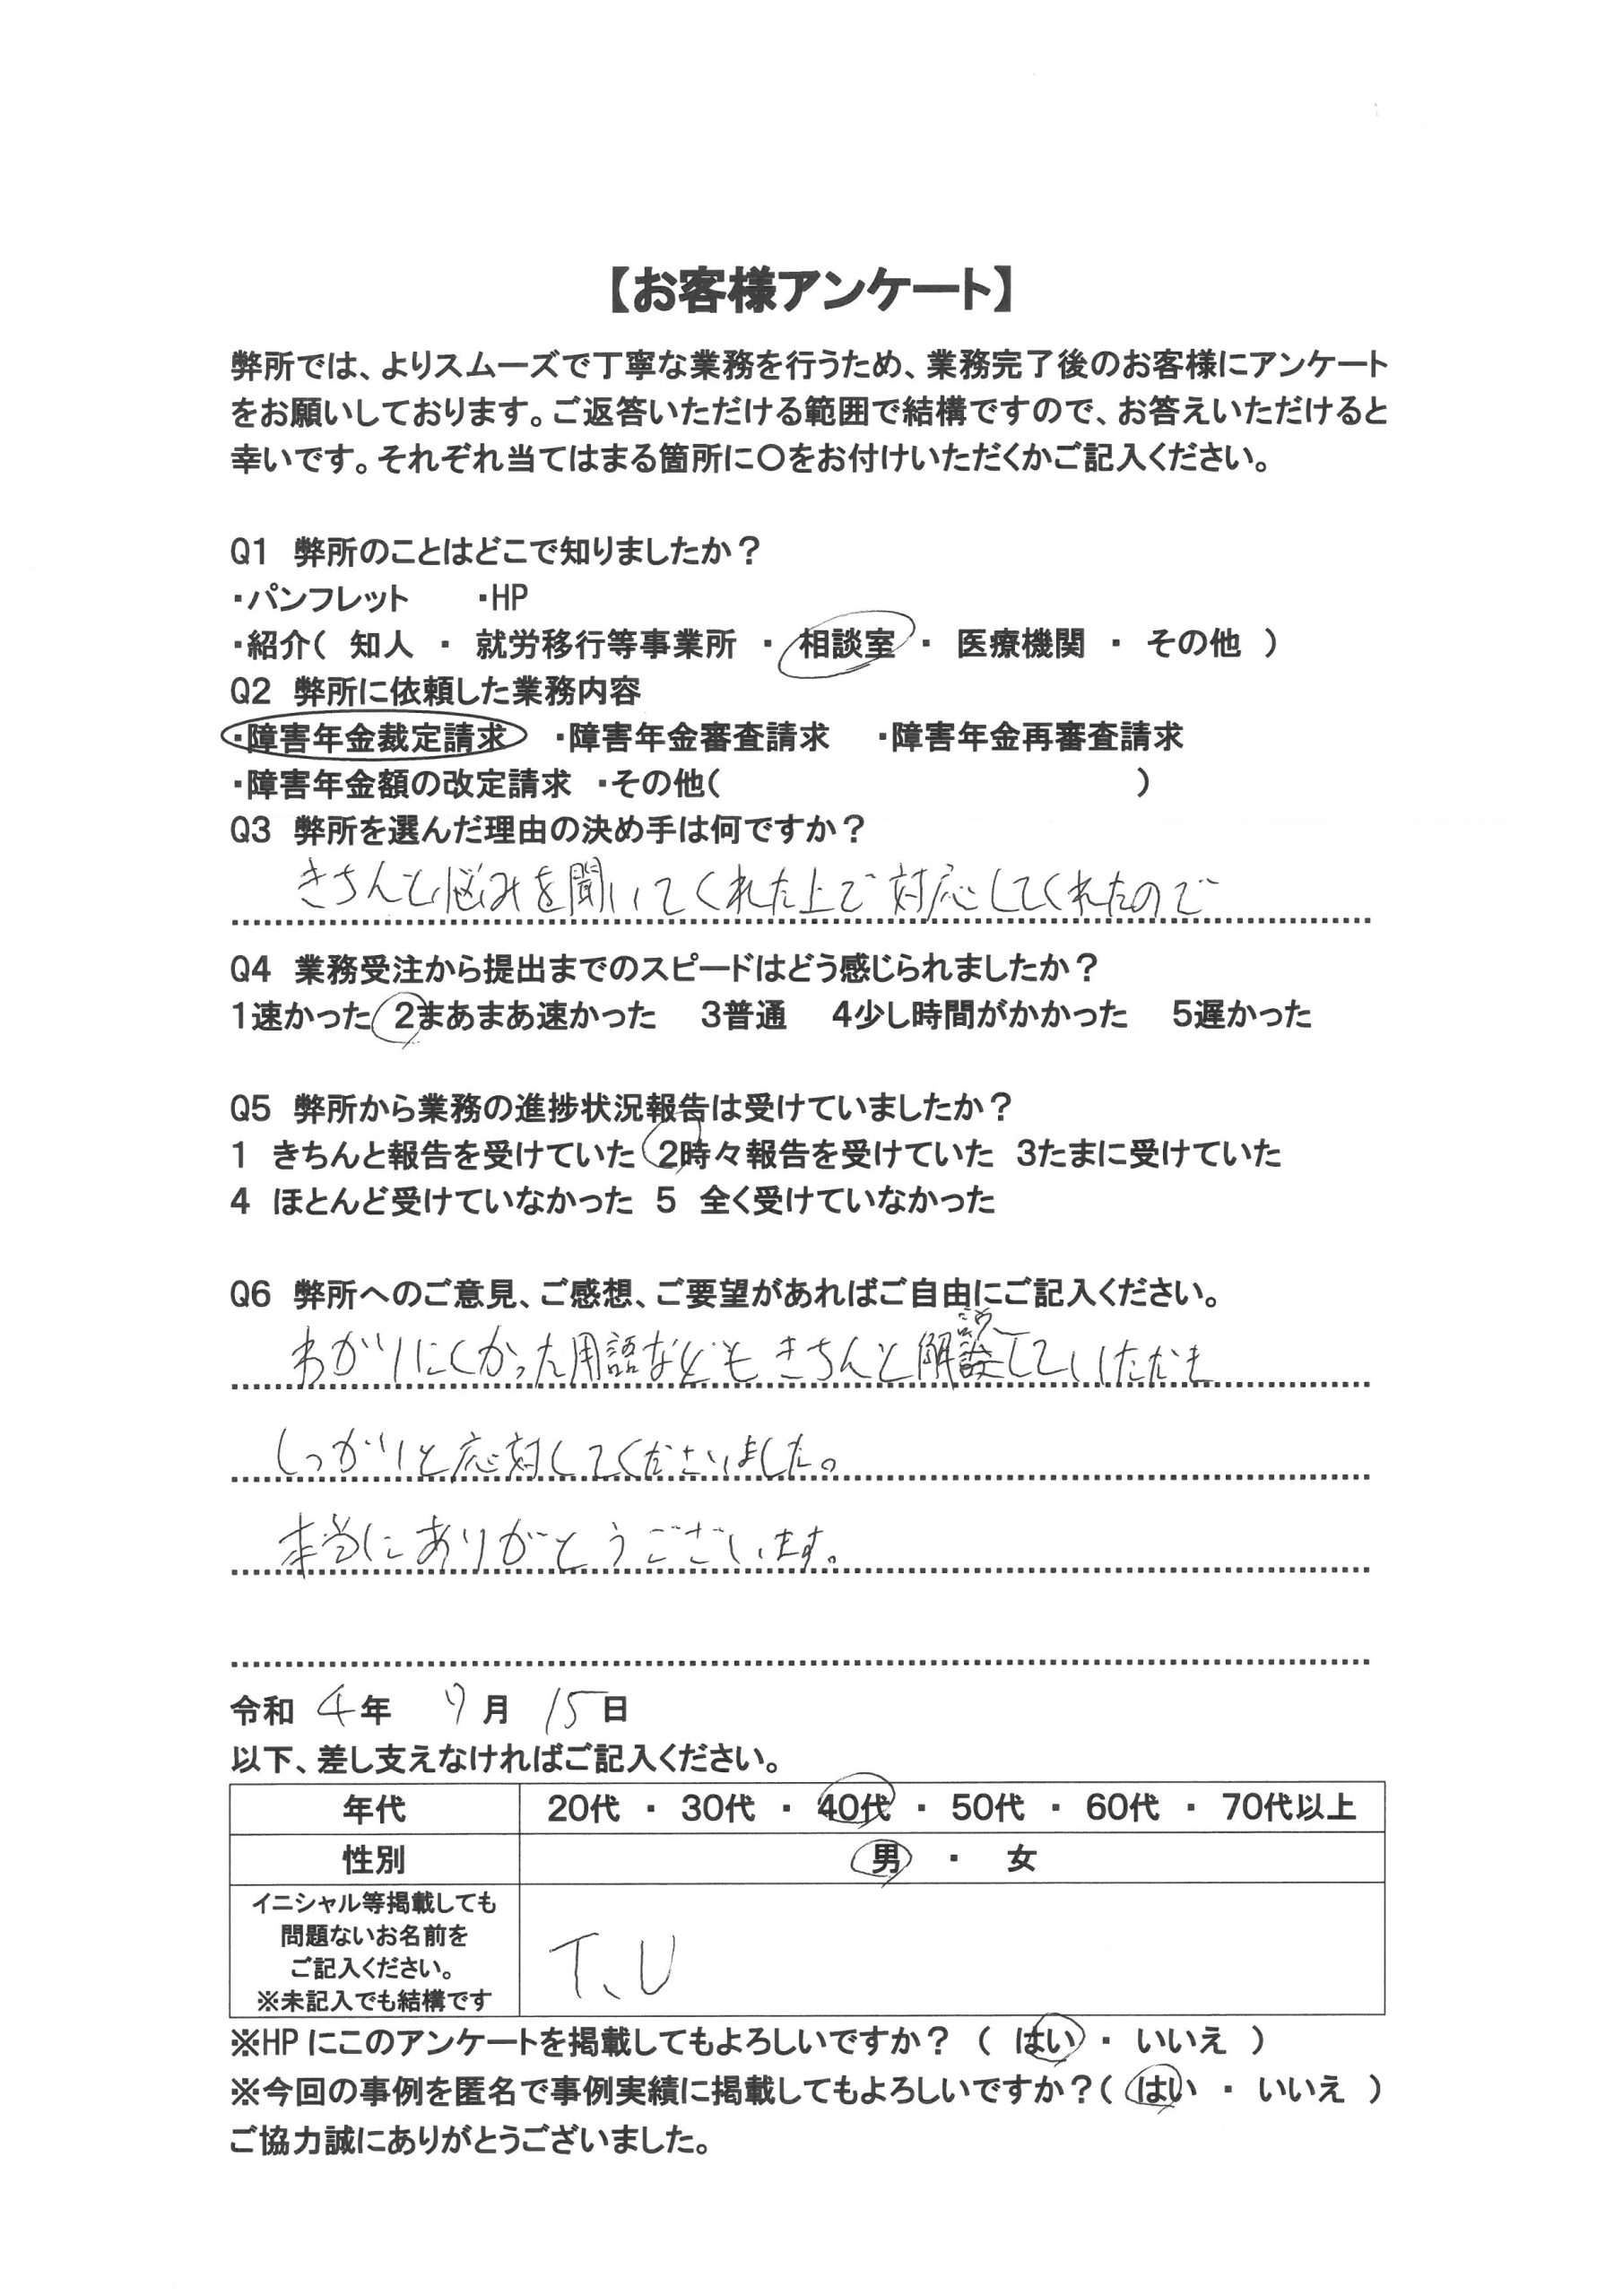 【お客様アンケート】
弊所では、よりスムーズで丁寧な業務を行うため、業務完了後のお客様にアンケート
をお願いしております。ご返答いただける範囲で結構ですので、お答えいただけると
幸いです。それぞれ当てはまる箇所に〇をお付けいただくかご記入ください。
Q1　弊所のことはどこで知りましたか？
・パンフレット　　・HP
・紹介（ 知人 ・ 就労移行等事業所 ・ 相談室 ・ 医療機関 ・ その他 ）
Q2　弊所に依頼した業務内容
・障害年金裁定請求　・障害年金審査請求　・障害年金再審査請求
・障害年金額の改定請求　・その他（　　　　　　　　　　　　　）
Q3　弊所を選んだ理由の決め手は何ですか？
きちんと悩みを聞いてくれた上で対応してくれたので
Q4　業務受注から提出までのスピードはどう感じられましたか？
1速かった　2まあまあ速かった　3普通　4少し時間がかかった　5遅かった
Q5　弊所から業務の進捗状況報告は受けていましたか？
1　きちんと報告を受けていた　2時々報告を受けていた　3たまに受けていた
4　ほとんど受けていなかった　5　全く受けていなかった
Q6　弊所へのご意見、ご感想、ご要望があればご自由にご記入ください。
わかりにくかった用語などもきちんと解説していただき
しっかりと応対してくださいました。
本当にありがとうございます。
令和 4年 月 15日
以下、差し支えなければご記入ください。
年代　20代 ・ 30代 ・ 40代 ・ 50代 ・ 60代 ・ 70代以上
性別　男 ・ 女
イニシャル等掲載しても
問題ないお名前を
ご記入ください。
※未記入でも結構です
T、U
※HPにこのアンケートを掲載してもよろしいですか？（ はい ・ いいえ ）
※今回の事例を匿名で事例実績に掲載してもよろしいですか？（ はい ・ いいえ ）
ご協力誠にありがとうございました。